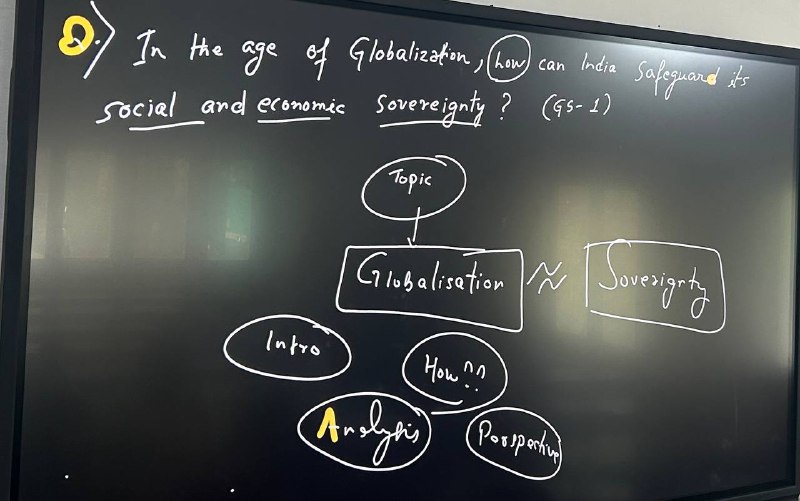 Q.) In the age of Globalization, how can India safeguard its
social and economic sovereignty? (GS-1)
Topic
Globalisation ≈ Soverignty
Intro
How??
Analysis
Perspective